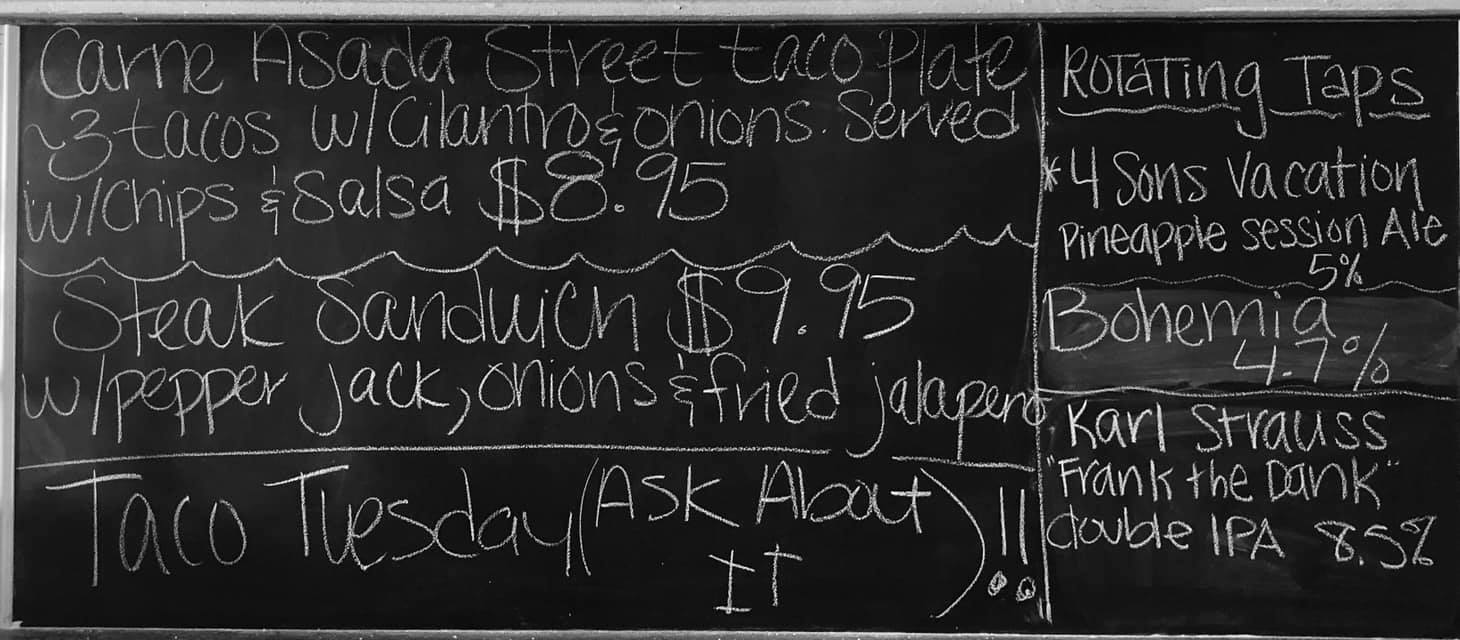 Carne Asada Street taco Plate
~3 tacos w/Cilantro & onions. Served
w/chips & Salsa $8.95
Steak Sandwich $9.95
w/pepper jack, onions & fried jalapeno
Taco Tuesday (Ask About
It)!!
Rotating Taps
*4 Sons Vacation
Pineapple session Ale
5%
Bohemia
4.7%
Karl Strauss
"Frank the Dank"
double IPA 8.5%